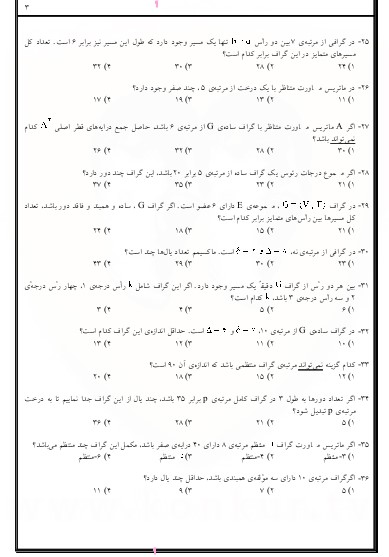 ۳
۲۵- در گرافی از مرتبه‌ی ۷ بین دو رأس a و b تنها یک مسیر وجود دارد که طول این مسیر نیز برابر ۶ است. تعداد کل
مسیرهای متمایز در این گراف برابر کدام است؟
۱) ۲۴ ۲) ۲۸ ۳) ۳۰ ۴) ۳۲
۲۶- در ماتریس مجاورت متناظر با یک درخت از مرتبه‌ی ۵، چند صفر وجود دارد؟
۱) ۱۱ ۲) ۱۳ ۳) ۱۹ ۴) ۱۷
۲۷- اگر A ماتریس مجاورت متناظر با گراف ساده‌ی G از مرتبه‌ی ۶ باشد، حاصل جمع درایه‌های قطر اصلی A کدام
نمی‌تواند باشد؟
۱) ۳۰ ۲) ۲۸ ۳) ۳۲ ۴) ۲۶
۲۸- اگر مجموع درجات رئوس یک گراف ساده از مرتبه‌ی ۵ برابر ۲۰ باشد، این گراف چند دور دارد؟
۱) ۲۱ ۲) ۲۳ ۳) ۳۵ ۴) ۳۷
۲۹- در گراف G = (V, E)، مجموعه‌ی E دارای ۶ عضو است. اگر گراف G، ساده و همبند و فاقد دور باشد، تعداد
کل مسیرها بین رأس‌های متمایز برابر کدام است؟
۱) ۲۱ ۲) ۱۵ ۳) ۱۸ ۴) ۲۴
۳۰- در گرافی از مرتبه‌ی نه، است. ماکسیمم تعداد یال‌ها چند است؟
۱) ۲۳ ۲) ۳۰ ۳) ۲۹ ۴) ۴۳
۳۱- بین هر دو رأس از گراف G دقیقاً یک مسیر وجود دارد. اگر این گراف شامل k رأس درجه‌ی ۱، چهار رأس درجه‌ی
۲ و سه رأس درجه‌ی ۳ باشد، k کدام است؟
۱) ۶ ۲) ۵ ۳) ۴ ۴) ۳
۳۲- در گراف ساده‌ی G از مرتبه‌ی ۱۰، و است. حداقل اندازه‌ی این گراف کدام است؟
۱) ۱۰ ۲) ۱۱ ۳) ۱۲ ۴) ۱۳
۳۳- کدام گزینه نمی‌تواند مرتبه‌ی گراف منتظمی باشد که اندازه‌ی آن ۹۰ است؟
۱) ۱۲ ۲) ۱۵ ۳) ۱۸ ۴) ۲۰
۳۴- اگر تعداد دورها به طول ۳ در گراف کامل مرتبه‌ی p برابر ۳۵ باشد، چند یال از این گراف جدا نماییم تا به درخت
مرتبه‌ی p تبدیل شود؟
۱) ۵ ۲) ۲۱ ۳) ۲۸ ۴) ۳۶
۳۵- اگر ماتریس مجاورت گراف منتظم مرتبه‌ی ۸ دارای ۴۰ درایه‌ی صفر باشد، مکمل این گراف چند منتظم می‌باشد؟
۱) ۳-منتظم ۲) ۴-منتظم ۳) منتظم ۴) ۶-منتظم
۳۶- اگر گراف مرتبه‌ی ۱۰ دارای سه مؤلفه‌ی همبندی باشد، حداقل چند یال دارد؟
۱) ۵ ۲) ۷ ۳) ۹ ۴) ۱۱